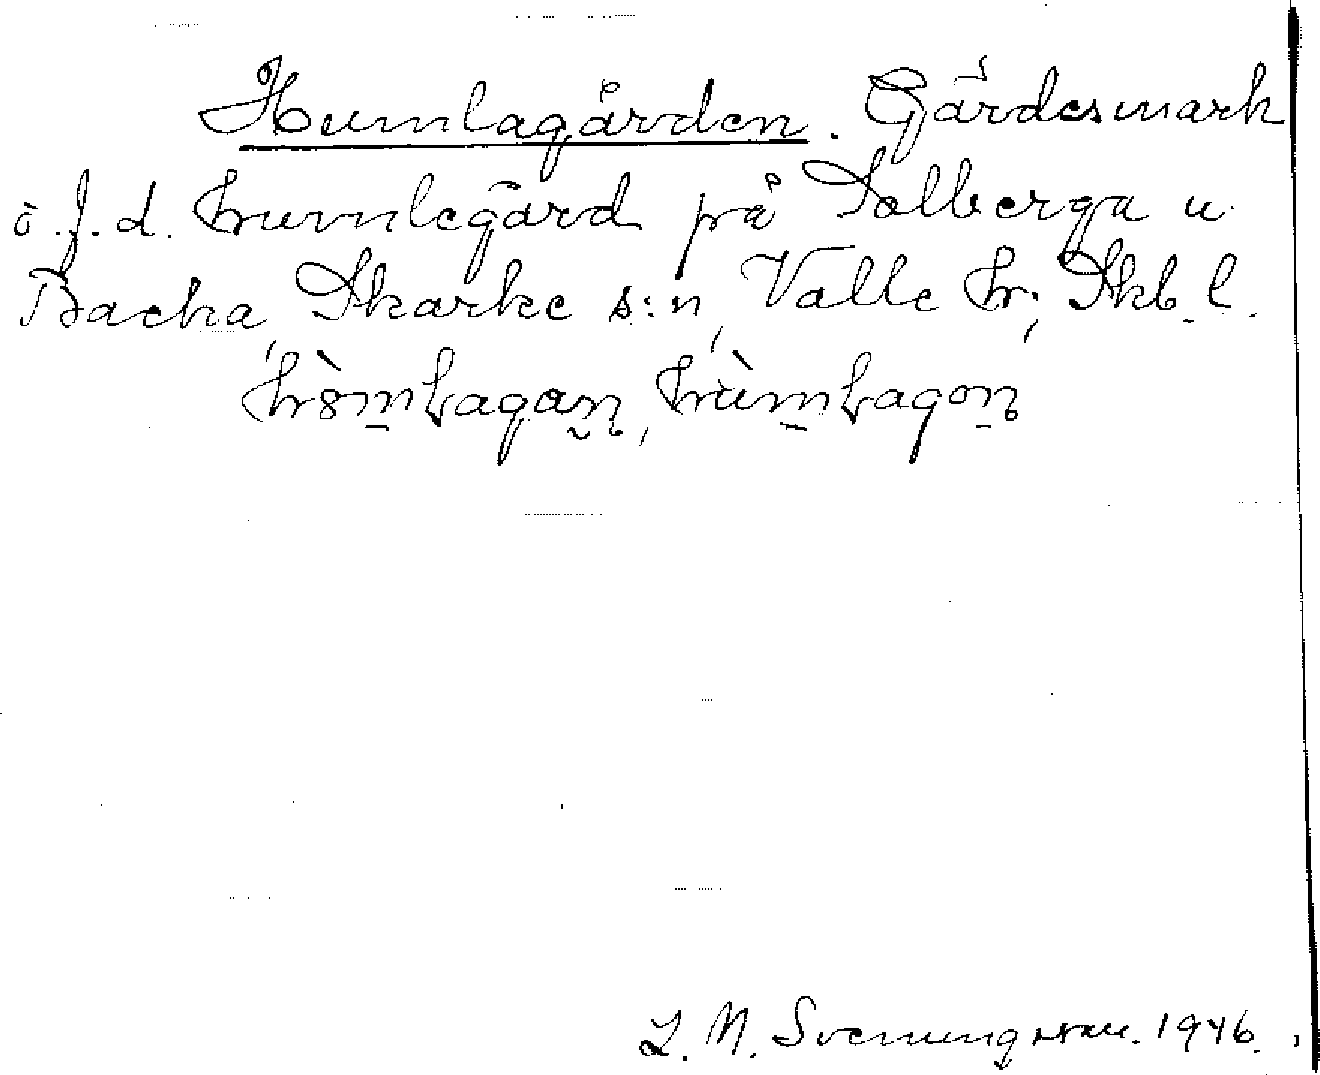 Humlagården. Gärdesmark
o. f. d. humlegård på Solberga u.
Backa, Skarke s:n, Valle hr, Skb. l.
L. M. Svenungsson. 1946.